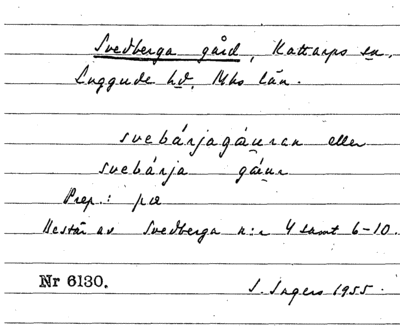 Svedberga gård, Kattarps sn,
Luggude hd, Mhs län.
svebárjagáuran eller
svebárja gáur
Prep.: pa
Består av Svedberga n:r 4 samt 6-10.
Nr 6130. I. Ingers 1955.